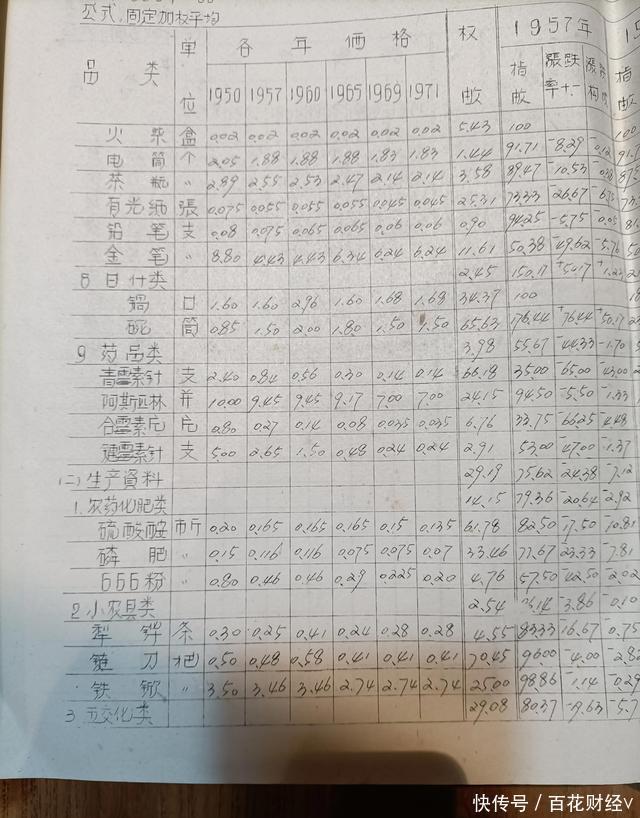 公式:固定加权平均
品类 单位 各年価格 权数 1957年
1950 1957 1960 1965 1969 1971 指数 漲跌率十一
火柴 盒 0.02 0.02 0.02 0.02 0.02 0.02 5.43 100
电筒 个 2.05 1.88 1.88 1.88 1.83 1.83 1.44 91.71 -8.29
茶瓶 〃 2.89 2.55 2.53 2.47 2.14 2.14 3.58 -10.53
有光纸 張 0.075 0.055 0.055 0.055 0.045 0.045 25.31 73.33 -26.67
铅笔 支 0.08 0.075 0.065 0.065 0.06 0.06 0.90 94.25 -5.75 -0.05
金笔 〃 8.80 4.43 4.43 6.34 6.24 6.24 11.61 50.38 -49.62 -5.76
8日什类 2.45 150.17 +50.17
鍋 口 1.60 1.60 2.96 1.60 1.68 1.68 34.37 100
碗 筒 0.85 1.50 2.00 1.80 1.50 1.50 65.63 176.44 +76.44 +50.17
9药品类 3.98 55.67 -44.33 -1.70
青霉素針 支 2.40 0.84 0.56 0.30 0.14 0.14 66.18 35.00 -65.00 -43.00
阿斯匹林 并 10.00 9.45 9.45 9.17 7.00 7.00 24.15 94.50 -5.50 -1.33
合霉素片 片 0.80 0.27 0.14 0.08 0.035 0.035 6.76 33.75 -66.25 -4.48
鏈霉素針 支 5.00 2.65 1.50 0.48 0.24 0.24 2.91 53.00 -47.00 -1.37
(二)生产資料 29.19 75.62 -24.38 -7.12
1.农药化肥类 14.15 79.36 -20.64 -2.92
硫酸酸 市斤 0.20 0.165 0.165 0.165 0.15 0.135 61.78 82.50 -17.50 -10.81
磷肥 〃 0.15 0.116 0.116 0.075 0.075 0.07 33.46 -23.33 -7.81
666粉 〃 0.80 0.46 0.46 0.29 0.225 0.20 4.76 57.50 -42.50 -2.02
2小农具类 2.54 -3.86 -0.10
犁铧 条 0.30 0.25 0.41 0.24 0.28 0.28 4.55 83.33 -16.67 -0.75
鏈刀 把 0.50 0.48 0.58 0.41 0.41 0.41 70.45 96.00 -4.00 -2.8
铁锨 〃 3.50 3.46 3.46 2.74 2.74 2.74 25.00 98.86 -1.14 -0.29
3.五交化类 29.08 80.37 -9.63 -5.7
快传号/百花财经v